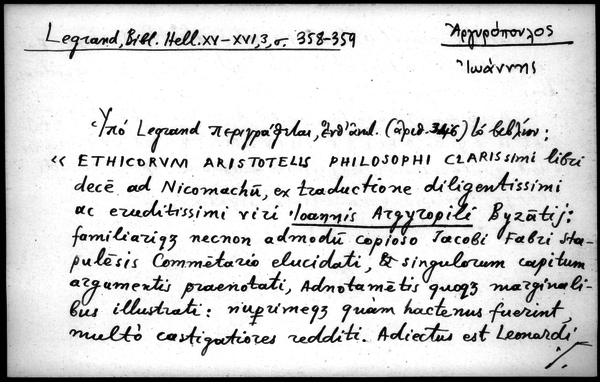 Legrand, Bibl. Hell. XV–XVI, 3, σ. 358-359
Ἀργυρόπουλος
Ἰωάννης
Ὑπό Legrand περιγράφεται, ἐνθ' ἀνωτ. (ἀριθ. 346) τό βιβλίον:
« ETHICORVM ARISTOTELIS PHILOSOPHI CLARISSIMI libri
decē ad Nicomachū, ex traductione diligentissimi
ac eruditissimi viri Ioannis Argyropili Byzātij:
familiariqȝ necnon admodū copioso Jacobi Fabri sta-
pulēsis Commētario elucidati, & singulorum capitum
argumentis praenotati, Adnotamētis quoqȝ marginali-
bus illustrati: nuꝑrimeqȝ quàm hactenus fuerint,
multò castigatiores redditi. Adiectus est Leonardi
./.